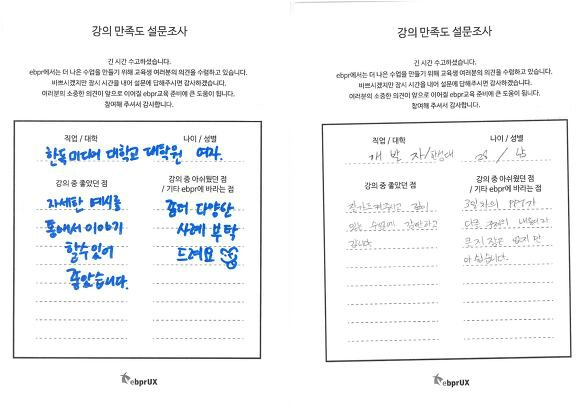 강의 만족도 설문조사
긴 시간 수고하셨습니다.
ebpr에서는 더 나은 수업을 만들기 위해 교육생 여러분의 의견을 수렴하고 있습니다.
바쁘시겠지만 잠시 시간을 내어 설문에 답해주시면 감사하겠습니다.
여러분의 소중한 의견이 앞으로 이어질 ebpr교육 준비에 큰 도움이 됩니다.
참여해 주셔서 감사합니다.
직업 / 대학
나이 / 성별
한독미디어 대학교 대학원 여자.
강의 중 좋았던 점
강의 중 아쉬웠던 점
/ 기타 ebpr에 바라는 점
자세한 예시를
통해서 이야기
할수있어
좋았습니다.
좀더 다양한
사례 부탁
드려요
ebprUX
강의 만족도 설문조사
긴 시간 수고하셨습니다.
ebpr에서는 더 나은 수업을 만들기 위해 교육생 여러분의 의견을 수렴하고 있습니다.
바쁘시겠지만 잠시 시간을 내어 설문에 답해주시면 감사하겠습니다.
여러분의 소중한 의견이 앞으로 이어질 ebpr교육 준비에 큰 도움이 됩니다.
참여해 주셔서 감사합니다.
직업 / 대학
나이 / 성별
개발자/
/ 남
강의 중 좋았던 점
강의 중 아쉬웠던 점
/ 기타 ebpr에 바라는 점
있는 수업에 감사하고
갑니다
3일차의 PPT가
아쉽습니다.
ebprUX